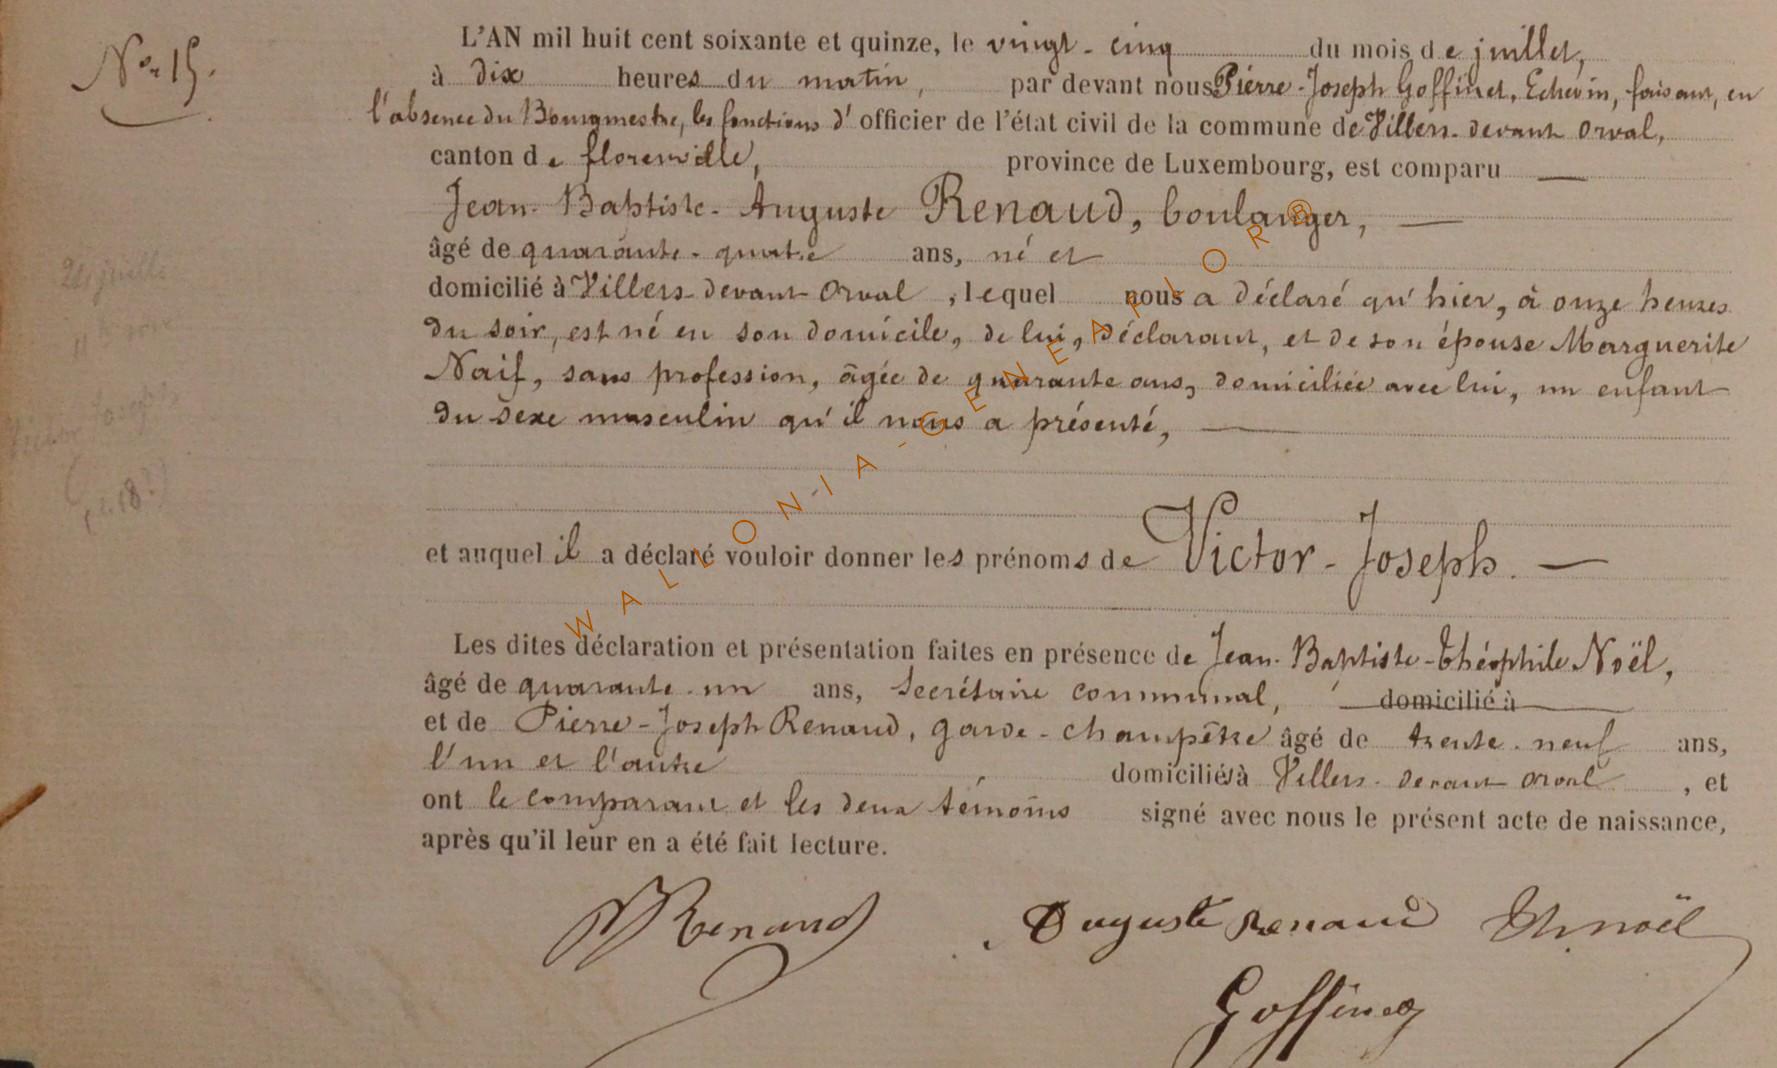 Nº 15.
L'AN mil huit cent soixante et quinze, le vingt-cinq du mois de juillet,
à dix heures du matin, par devant nous Pierre-Joseph Goffinet, Echevin, faisant, en
l'absence du Bourgmestre, les fonctions d'officier de l'état civil de la commune de Villers-devant Orval,
canton de florenville, province de Luxembourg, est comparu —
Jean-Baptiste-Auguste Renaud, boulanger, —
âgé de quarante-quatre ans, né et
domicilié à Villers-devant-Orval, lequel nous a déclaré qu'hier, à onze heures
du soir, est né en son domicile, de lui, déclarant, et de son épouse Marguerite
Naif, sans profession, âgée de quarante ans, domiciliée avec lui, un enfant
du sexe masculin qu'il nous a présenté, —
et auquel il a déclaré vouloir donner les prénoms de Victor-Joseph. —
Les dites déclaration et présentation faites en présence de Jean-Baptiste-Théophile Noël,
âgé de quarante-un ans, Secrétaire communal, domicilié à
et de Pierre-Joseph Renaud, garde-champêtre âgé de trente-neuf ans,
l'un et l'autre domiciliés à Villers-devant-Orval, et
ont le comparant et les deux témoins signé avec nous le présent acte de naissance,
après qu'il leur en a été fait lecture.
Renaud Auguste Renaud Th. noël
Goffinet
WALLONIA-GENEAFLOR®
24 juillet
11 h soir
Victor Joseph